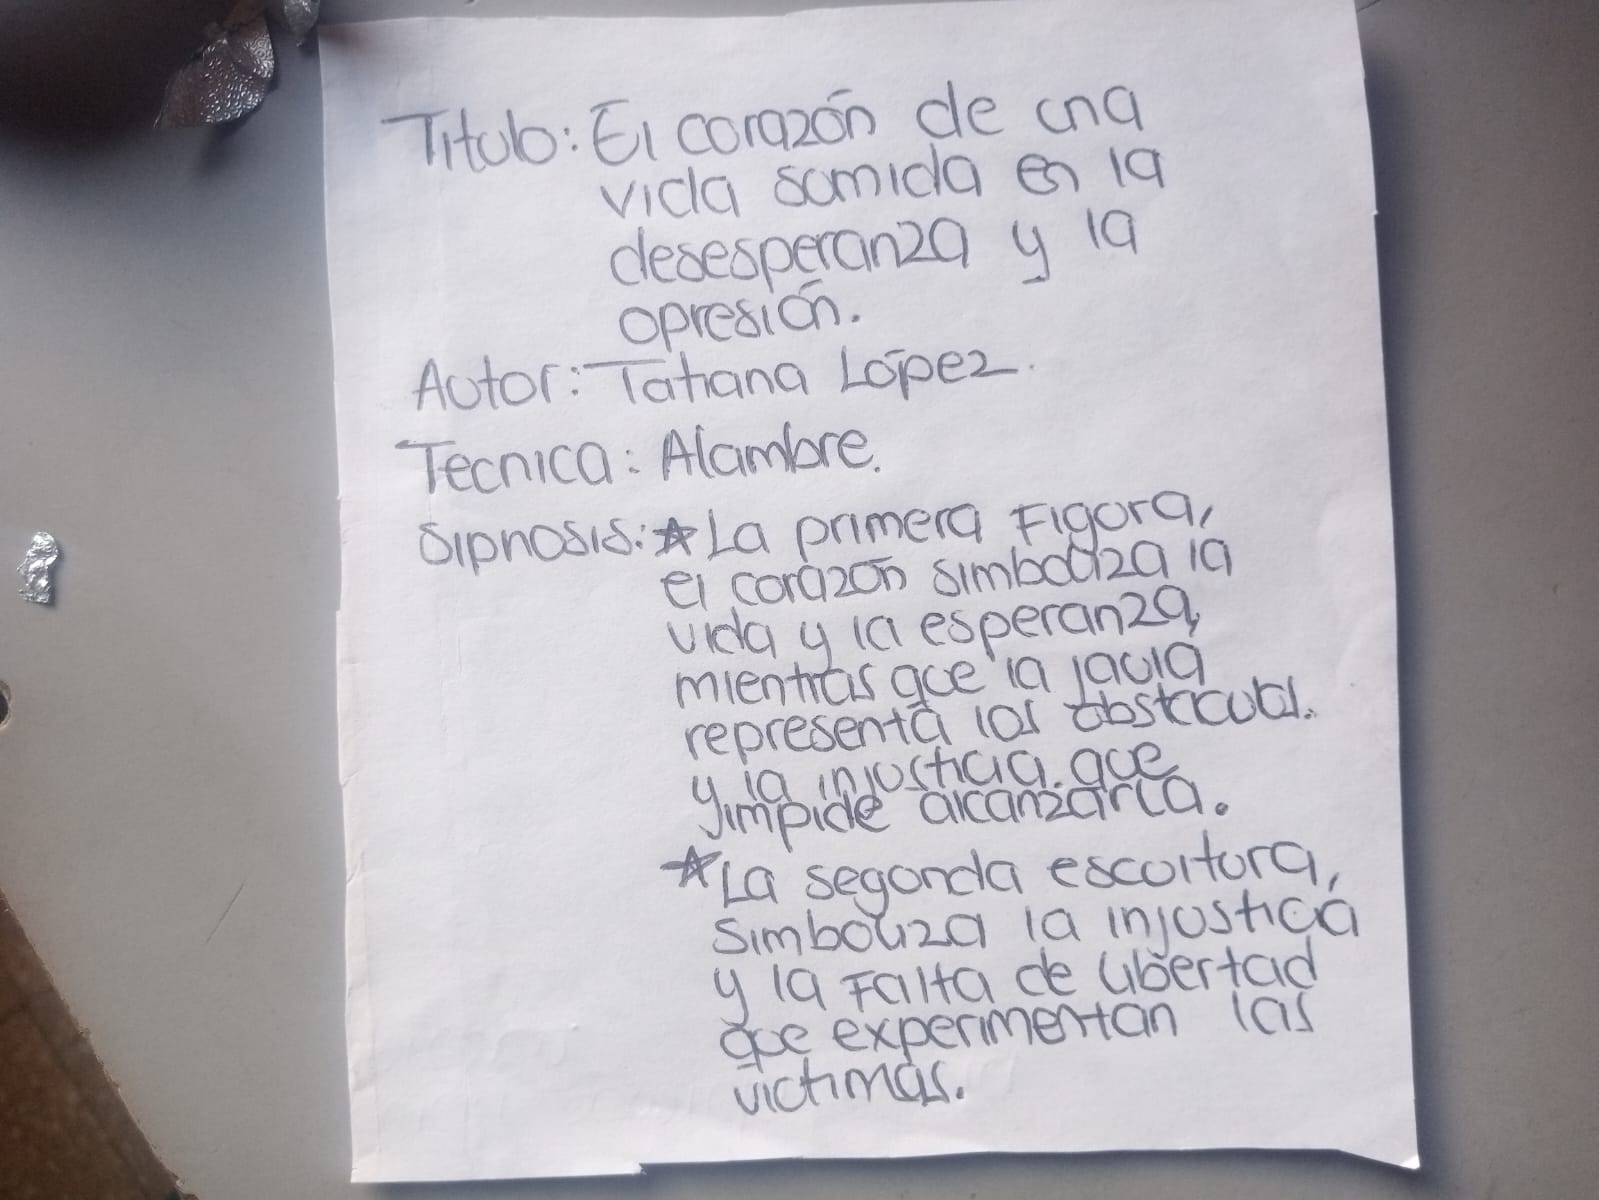 Titulo: El corazón de una
vida sumida en la
desesperanza y la
opresión.
Autor: Tatiana López.
Tecnica: Alambre.
Sipnosis: ★ La primera Figura,
el corazón simboliza la
vida y la esperanza,
mientras que la jaula
representa los obstaculos.
y la injusticia. que
impide alcanzarla.
★ La segunda escultura,
simboliza la injusticia
y la Falta de libertad
que experimentan las
victimas.